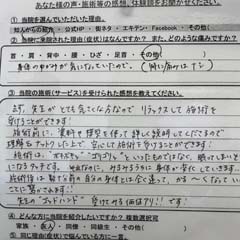 あなた様の声・施術等の感想、体験談をお聞かせください。
①当院を選んでいただいた理由。
知人からの紹介・公式HP・街ネタ・エキテン・Facebook・その他
②当院に来院された症状はなんですか？また、どのような痛みですか？
首・肩・背中・腰・ひざ・足首・その他(
身体のゆがみが気になっていたので。(特に痛みはナシ)
③当院の施術(サービス)を受けられた感想を教えてください。
まず、先生がとても気さくな方なので リラックスして施術を
受けることができます！
施術前に、資料や模型を使って詳しく説明してくださるので
理解もナットクした上で、安心して施術を受けることができます！
施術は"ボキボキッ""ゴリゴリ"といったものではなく、眠ってしまいそうに
なるソフトです。
施術後は 前の自分の身体とは全く違って、かるくなっていることに
驚かされます！！
先生の"ゴッドハンド"受けてみる価値アリ!!です
④どんな方に当院を紹介したいですか？複数選択可
家族・友人・同僚・同級生・その他(
⑤同じ理由(症状)で悩んでいる方に一言。